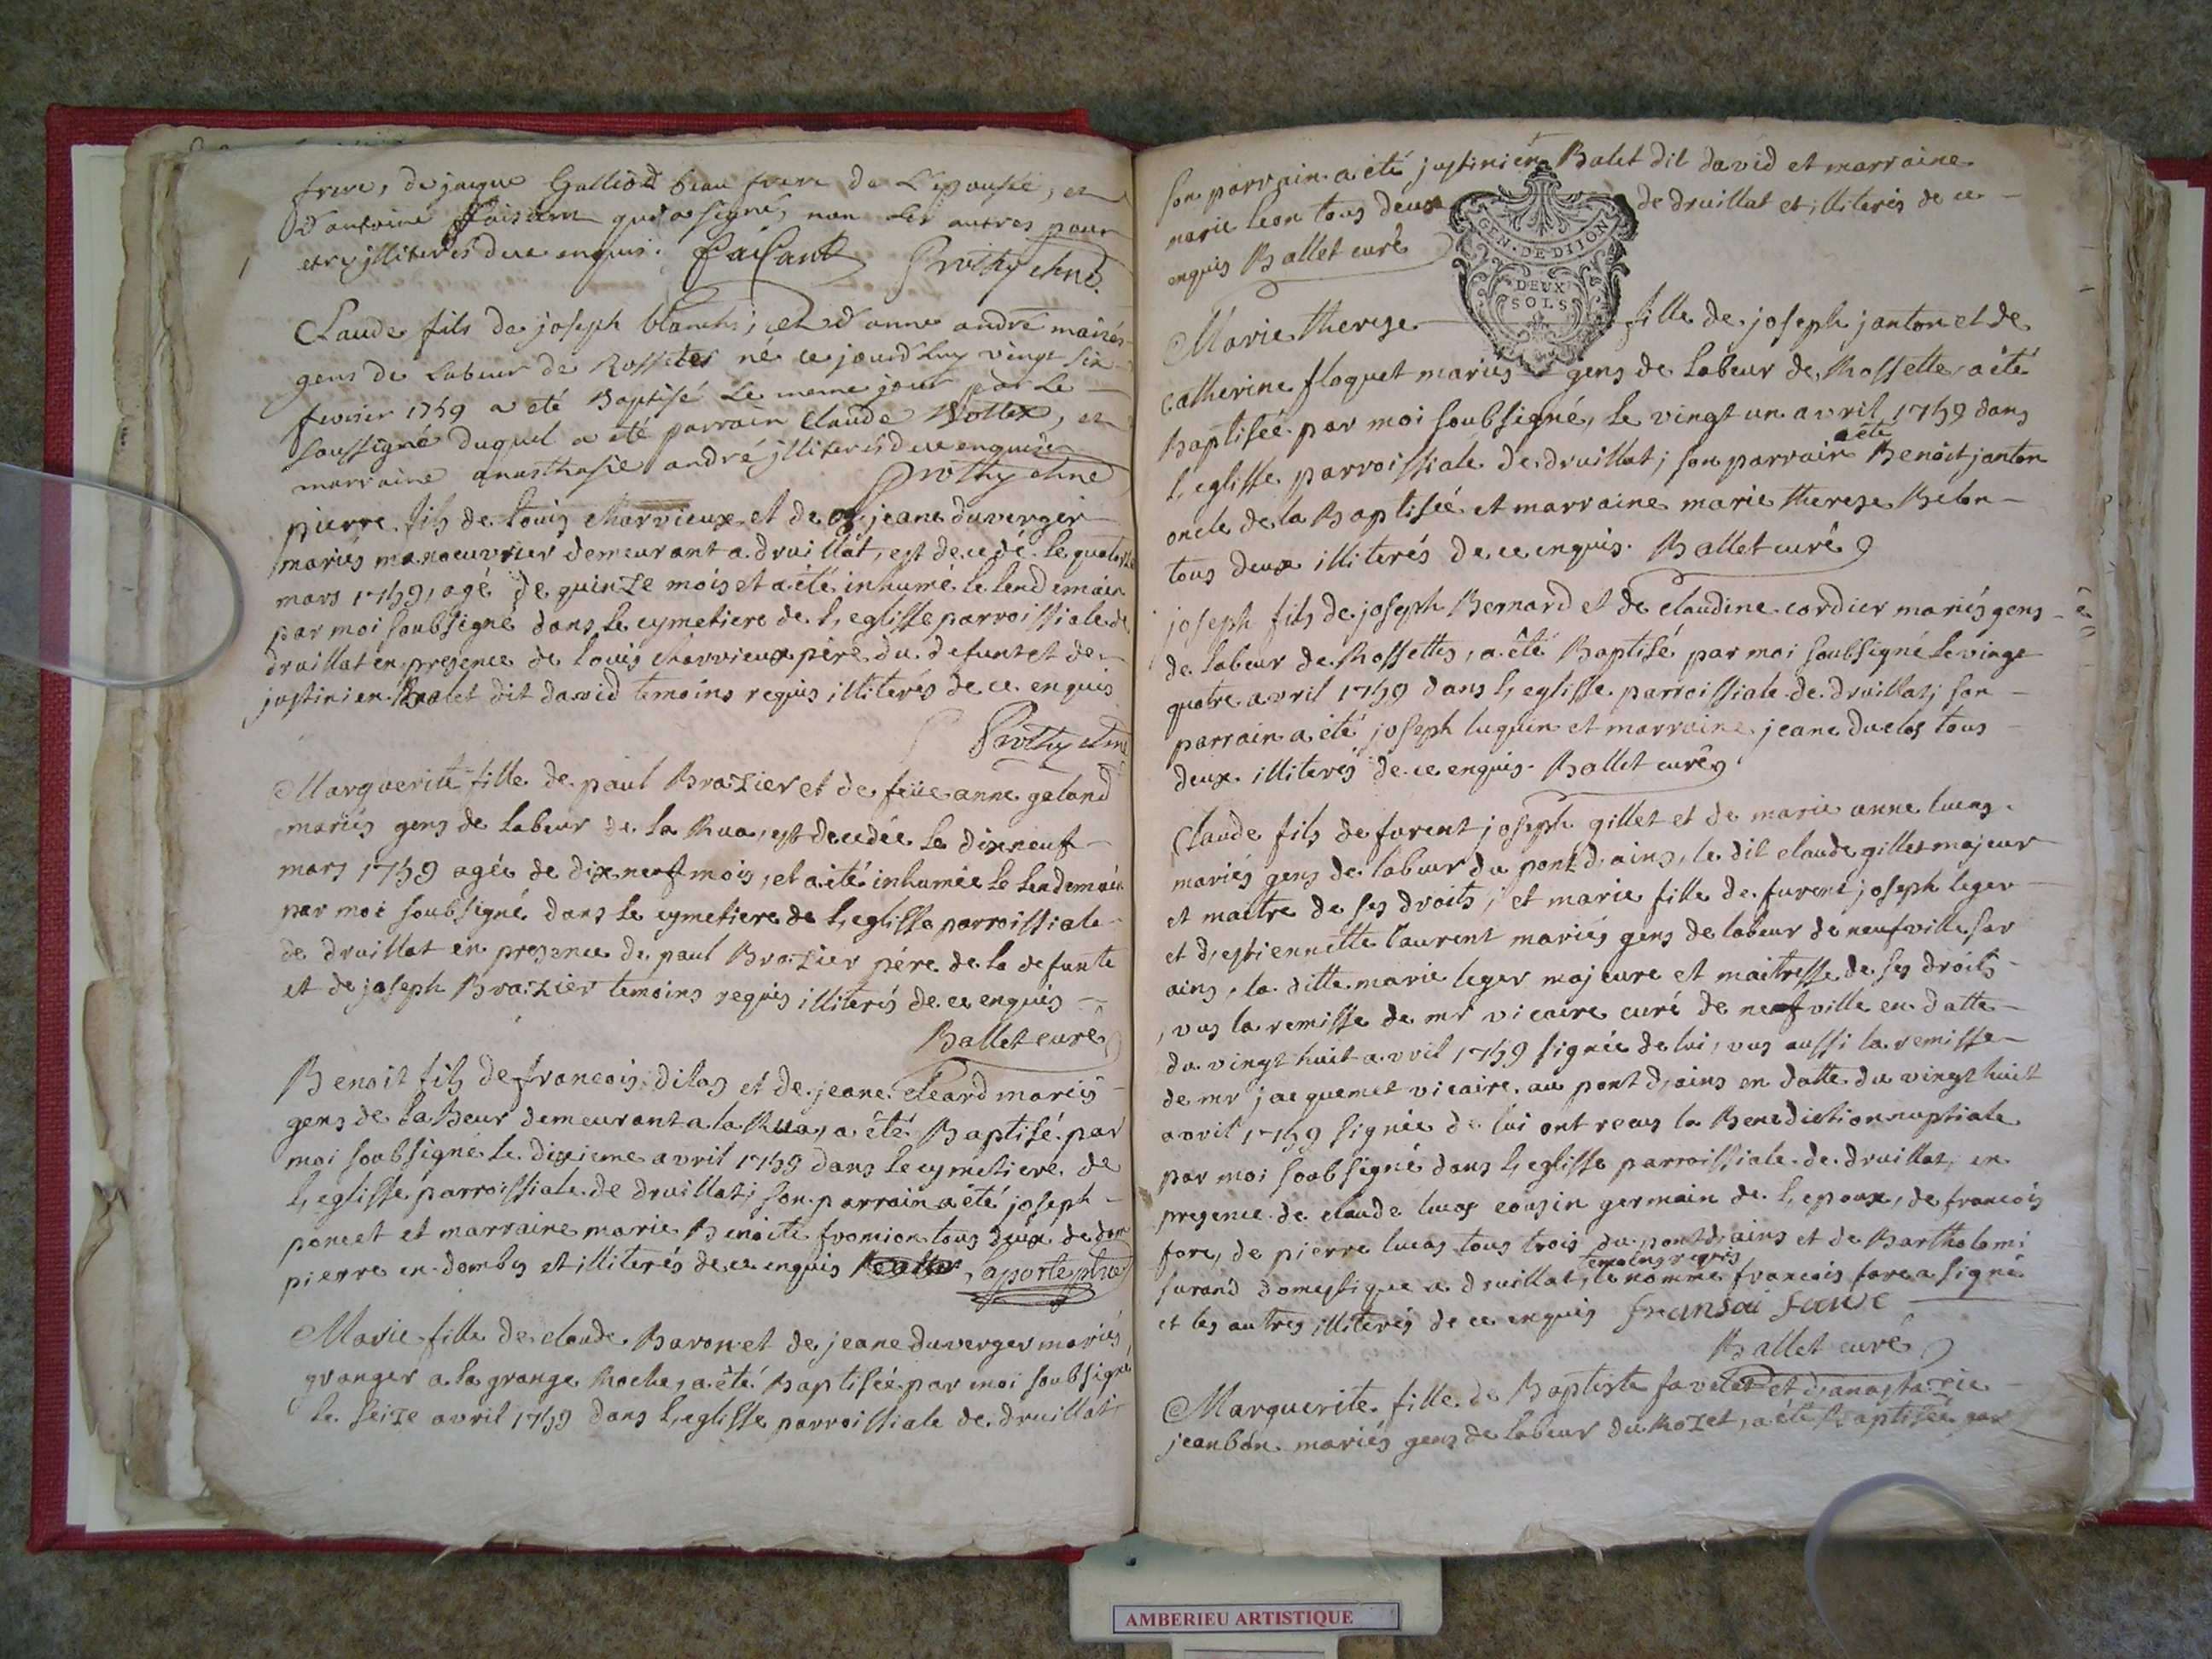 frere, de jaque Galliod beau frere de L'epousée, et
d'antoine faisant qui a signé, non les autres pour
etre illiterés de ce enquis. faisant Prothy
Claude fils de joseph blanchi, et d'anne andré mariés
gens de Labeur de Rossettes né ce jourd'huy vingt six
fevrier 1759 a eté Baptisé Le meme jour par Le
soussigné duquel a eté parrain Claude et
marraine anasthasie andré illiterés de ce enquis
Prothy
pierre fils de louis charvieux et de jeane duverger
mariés manoeuvrier demeurant a druillat, est decedé le quatorze
mars 1759, agé de quinze mois et a été inhumé le lendemain
par moi soubsigné dans le cymetiere de l,eglisse parroissiale de
druillat en presence de louis charvieux père du defunt et de
justinien Balet dit david temoins requis illiterés de ce enquis
Prothy
Marguerite fille de paul Brazier et de feüe anne galand
mariés gens de labeur de la Rua, est decedée le dixneuf
mars 1759 agée de dix neuf mois, et a été inhumée le lendemain
par moi soubsigné dans le cymetiere de l,eglisse parroissiale
de druillat en presence de paul Brazier père de la defunte
et de joseph Brazier temoins requis illiterés de ce enquis
Ballet curé
Benoit fils de francois dilas et de jeane cleard mariés
gens de laBeur demeurant a la Rua, a été Baptisé par
moi soubsigné le dixieme avril 1759 dans le cymetiere de
l,eglisse parroissiale de druillat; son parrain a été joseph
poncet et marraine marie Benoite fromion tous deux de dom
pierre en dombes et illiterés de ce enquis
Marie fille de claude Baron et de jeane duverger mariés
granger a la grange Roche, a été Baptisée par moi soubsigné
le seize avril 1759 dans l,eglisse parroissiale de druillat
son parrain a été justinien Balet dit david et marraine
marie leon tous deux de druillat et illiterés de ce
enquis Ballet curé
GEN. DE DIJON
DEUX
SOLS
Marie therese fille de joseph janton et de
catherine floquet mariés gens de labeur de Rossette, a été
baptisée par moi soubsigné, le vingt un avril 1759 dans
l,eglisse parroissiale de druillat; son parrain a été Benoit janton
oncle de la Baptisée et marraine marie therese Belon
tous deux illiterés de ce enquis. Ballet curé
joseph fils de joseph Bernard et de claudine cordier mariés gens
de labeur de Rossettes, a été Baptisé par moi soubsigné le vingt
quatre avril 1759 dans l,eglisse parroissiale de druillat; son
parrain a été joseph luquin et marraine jeane duclos tous
deux illiterés de ce enquis. Ballet curé
Claude fils de furent joseph gillet et de marie anne lucas
mariés gens de labeur du pont d,ains, le dit claude gillet majeur
et maitre de ses droits; et marie fille de furent joseph leger
et d,estiennette laurent mariés gens de labeur de neufville sur
ains, la ditte marie leger majeure et maitresse de ses droits
, vus la remisse de mr vicaire curé de neufville en datte
du vingt huit avril 1759 signée de lui, vus aussi la remisse
de mr jacquemet vicaire au pont d,ains en datte du vingt huit
avril 1759 signée de lui ont recus la Benediction nuptiale
par moi soubsigné dans l,eglisse parroissiale de druillat, en
presence de claude lucas cousin germain de l,epoux, de francois
fare, de pierre lucas tous trois du pont d,ains et de Bartholomi
surand domestique a druillat, temoins requis le nommé francois fare a signé
et les autres illiterés de ce enquis fransoi fare
Ballet curé
Marguerite fille de Baptiste favelet et d,anastazie
jeanbon mariés gens de labeur du Rozet, a été Baptisée par
AMBERIEU ARTISTIQUE